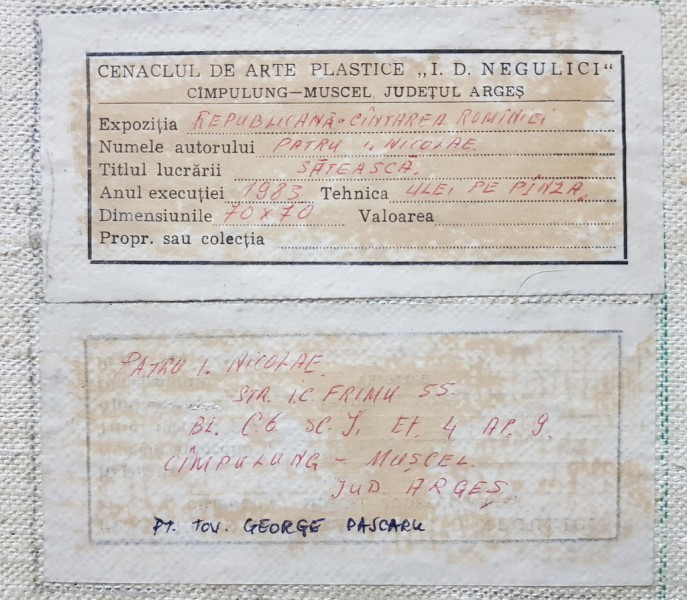 CENACLUL DE ARTE PLASTICE „I. D. NEGULICI“
CÎMPULUNG—MUSCEL, JUDEȚUL ARGEȘ
Expoziția REPUBLICANĂ - CÎNTAREA ROMÎNIEI
Numele autorului PATRU I. NICOLAE
Titlul lucrării SĂTEASCĂ.
Anul execuției 1983 Tehnica ULEI PE PÎNZĂ
Dimensiunile 70 x 70 Valoarea
Propr. sau colecția
PATRU I. NICOLAE.
STR. I.C. FRIMU 55.
BL. C.6 SC. J. ET. 4 AP. 9.
CÎMPULUNG - MUȘCEL.
JUD ARGEȘ
PT. TOV. GEORGE PASCARU